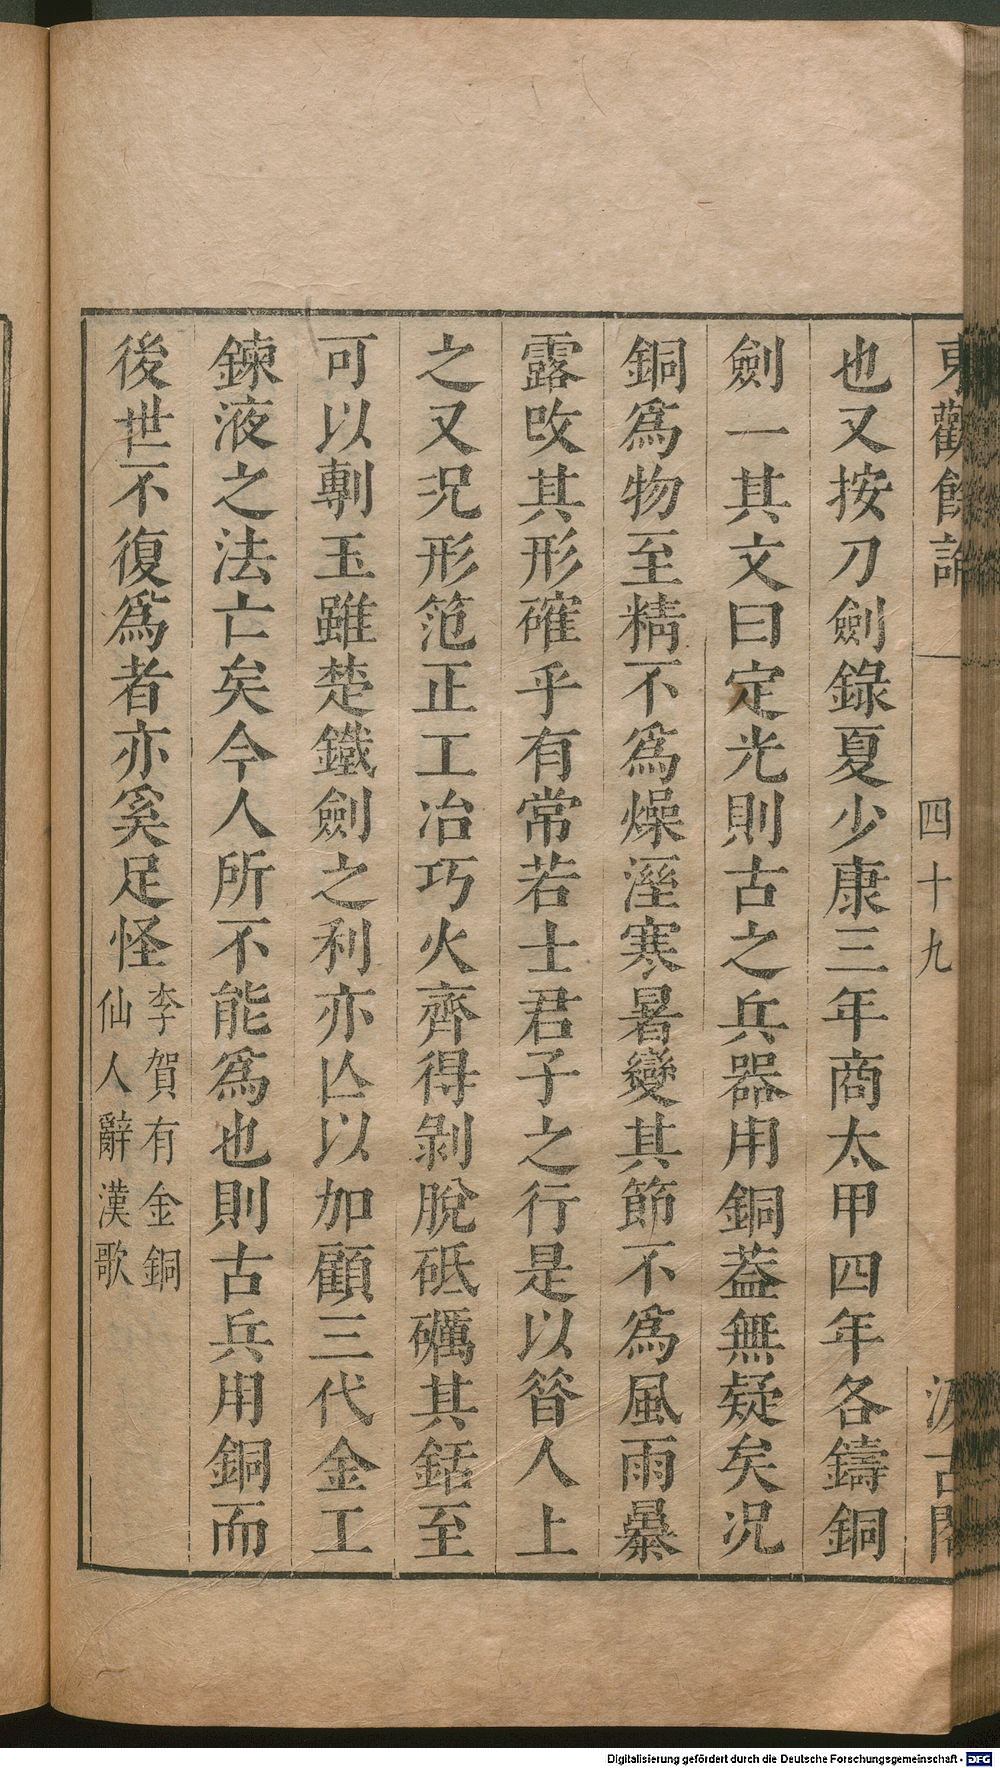 東觀餘論 四十九 汲古閣
也又按刀劍錄夏少康三年商太甲四年各鑄銅
劍一其文曰定光則古之兵器用銅葢無疑矣況
銅爲物至精不爲燥溼寒暑變其節不爲風雨暴
露攺其形確乎有常若士君子之行是以昝人上
之又況形范正工冶巧火齊得剝脫砥礪其銛至
可以剸玉雖楚鐵劍之利亦亾以加顧三代金工
鍊液之法亡矣今人所不能爲也則古兵用銅而
後世不復爲者亦奚足怪
李賀有金銅
仙人辭漢歌
Digitalisierung gefördert durch die Deutsche Forschungsgemeinschaft - DFG